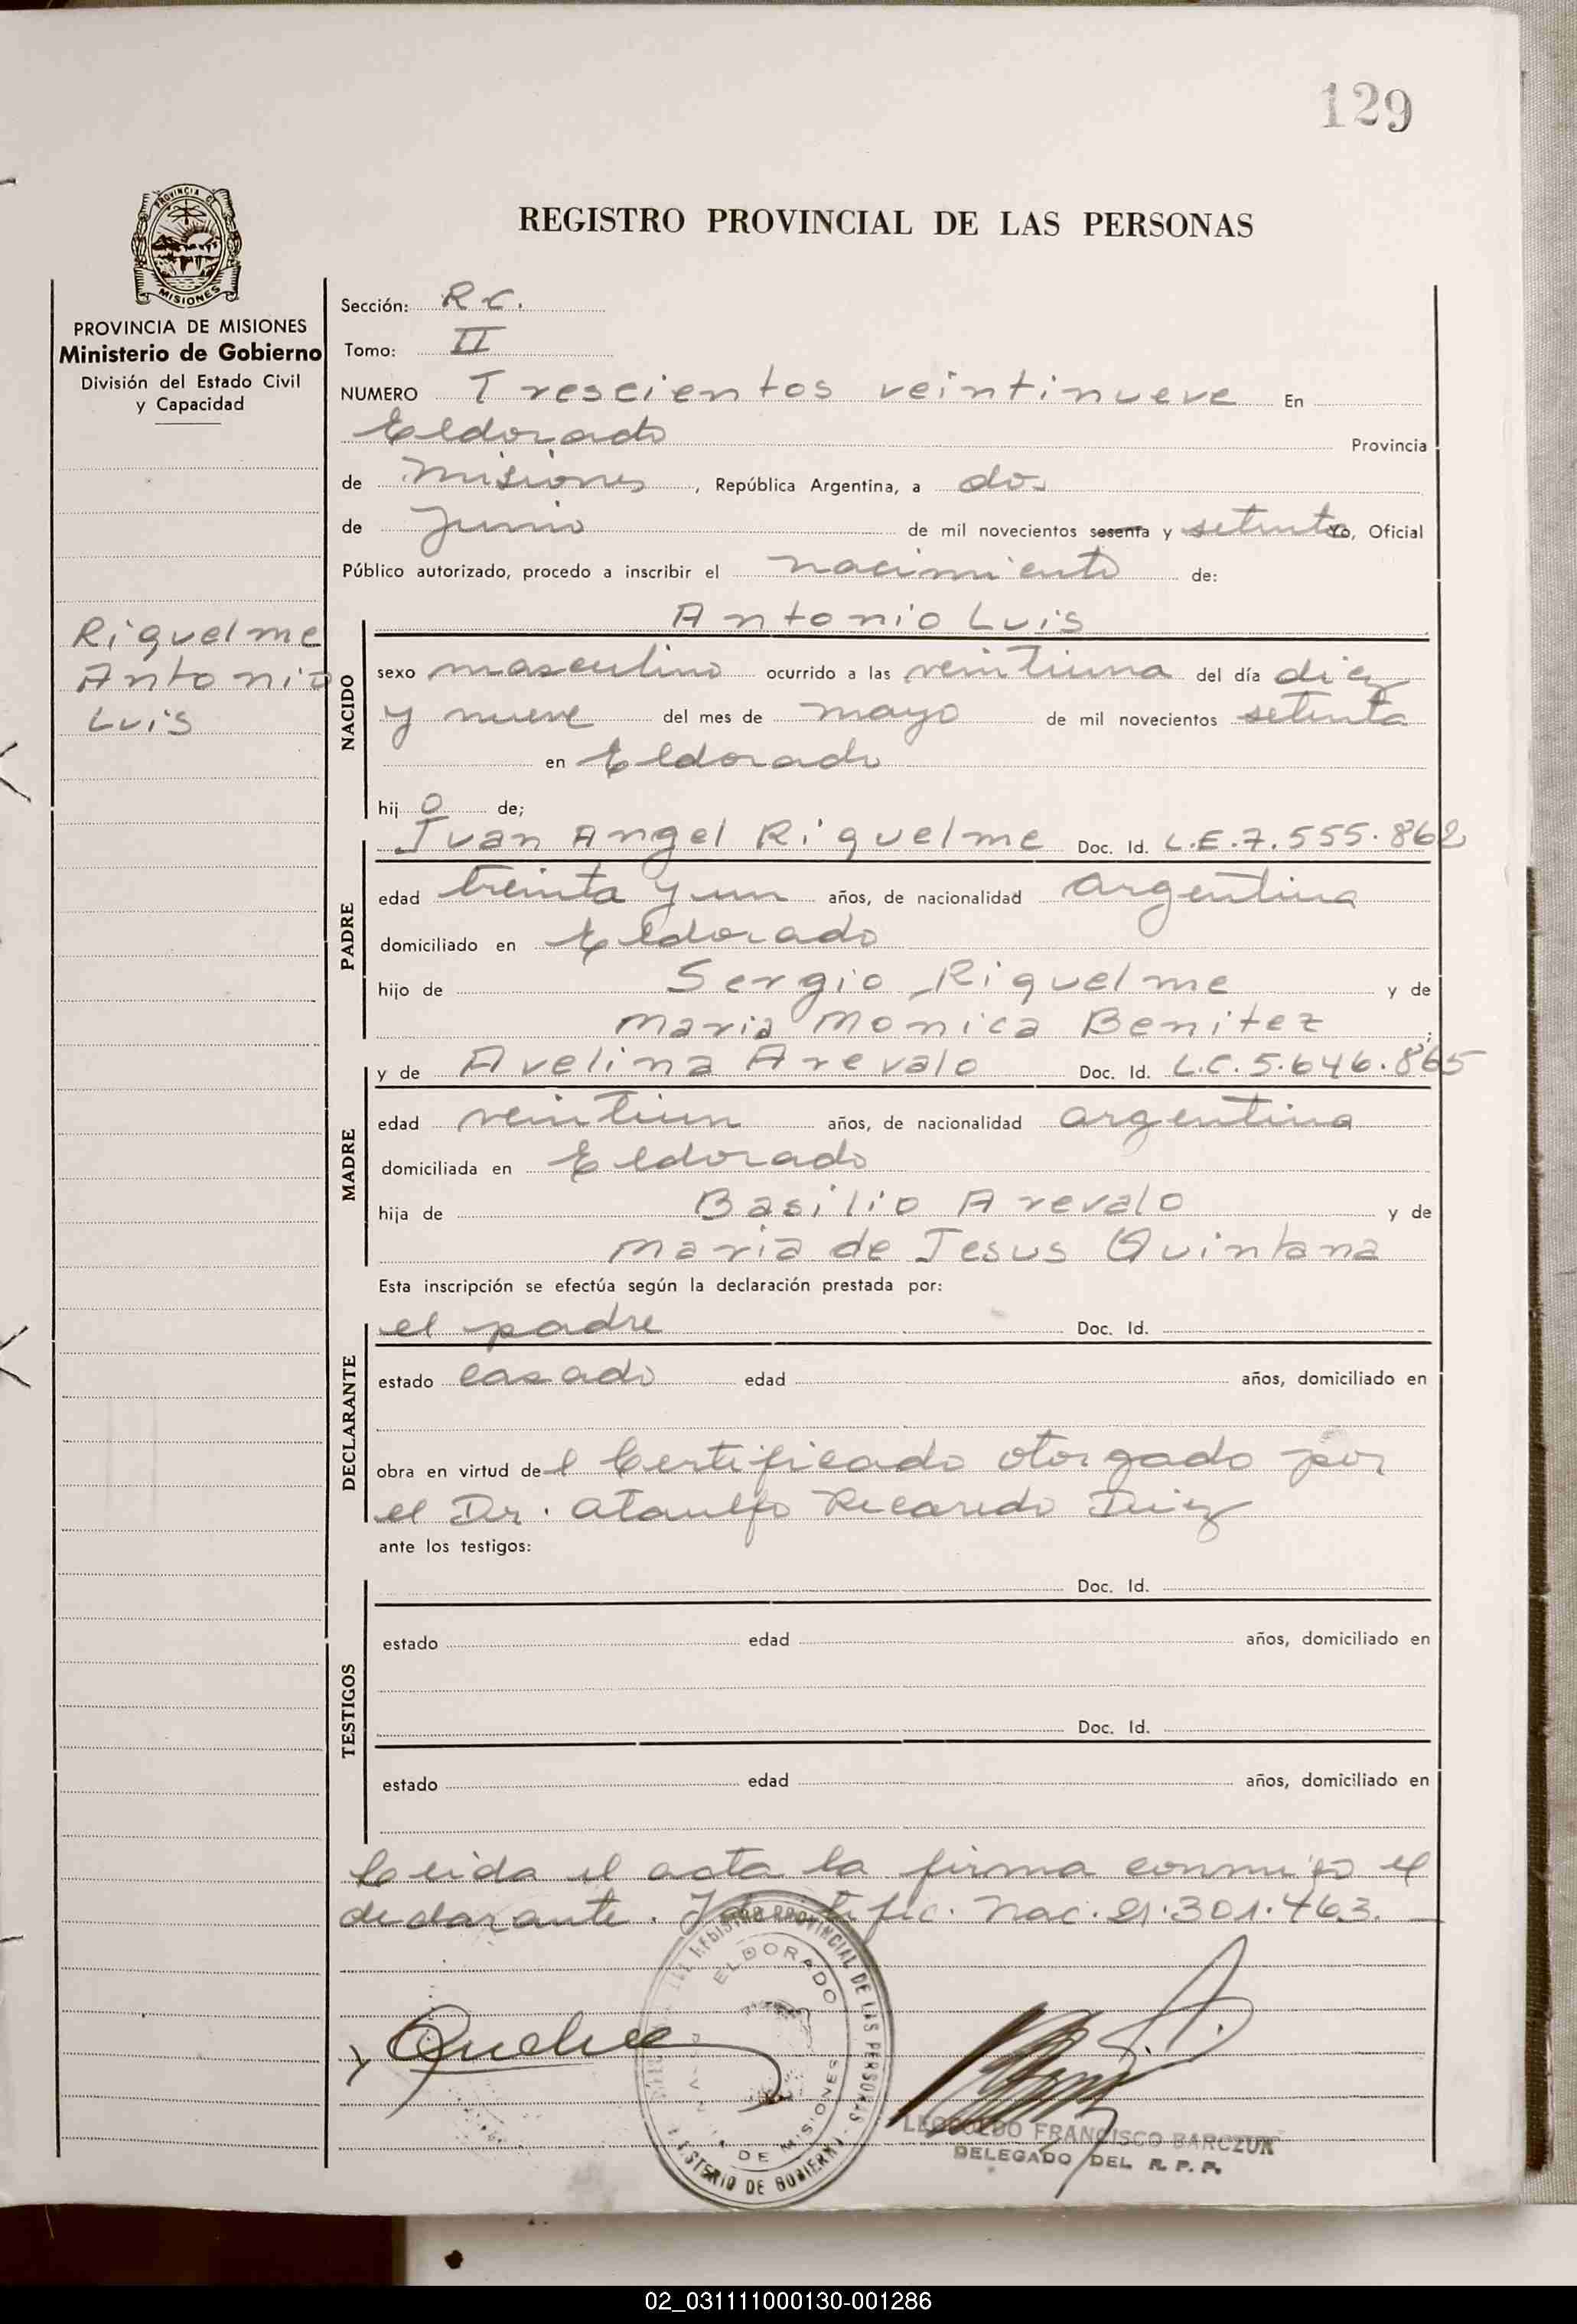 129
PROVINCIA DE MISIONES
REGISTRO PROVINCIAL DE LAS PERSONAS
PROVINCIA DE MISIONES
Ministerio de Gobierno
División del Estado Civil
y Capacidad
Sección: R.C.
Tomo: II
NUMERO Trescientos veintinueve En
Eldorado Provincia
de Misiones, República Argentina, a dos
de Junio de mil novecientos sesenta y setenta Yo, Oficial
Público autorizado, procedo a inscribir el nacimiento de:
Riquelme
Antonio
Luis
Antonio Luis
NACIDO
sexo masculino ocurrido a las veintiuna del día diez
y nueve del mes de mayo de mil novecientos setenta
en Eldorado
hijo de;
Juan Angel Riquelme Doc. Id. L.E.7.555.862
PADRE
edad treinta y un años, de nacionalidad argentina
domiciliado en Eldorado
hijo de Sergio Riquelme y de
Maria Monica Benitez
y de Avelina Arevalo Doc. Id. L.C.5.646.865
MADRE
edad veintiun años, de nacionalidad argentina
domiciliada en Eldorado
hija de Basilio Arevalo y de
Maria de Jesus Quintana
Esta inscripción se efectúa según la declaración prestada por:
el padre Doc. Id.
DECLARANTE
estado casado edad años, domiciliado en
obra en virtud del Certificado otorgado por
el Dr. Ataulfo Recaredo Diez
ante los testigos:
TESTIGOS
Doc. Id.
estado edad años, domiciliado en
Doc. Id.
estado edad años, domiciliado en
Leida el acta la firma conmigo el
declarante. Identific. Nac. 21.301.463.
REGISTRO PROVINCIAL DE LAS PERSONAS
ELDORADO
DE MISIONES
MINISTERIO DE GOBIERNO
LEOPOLDO FRANCISCO BARCZUK
DELEGADO DEL R. P. P.
02_031111000130-001286